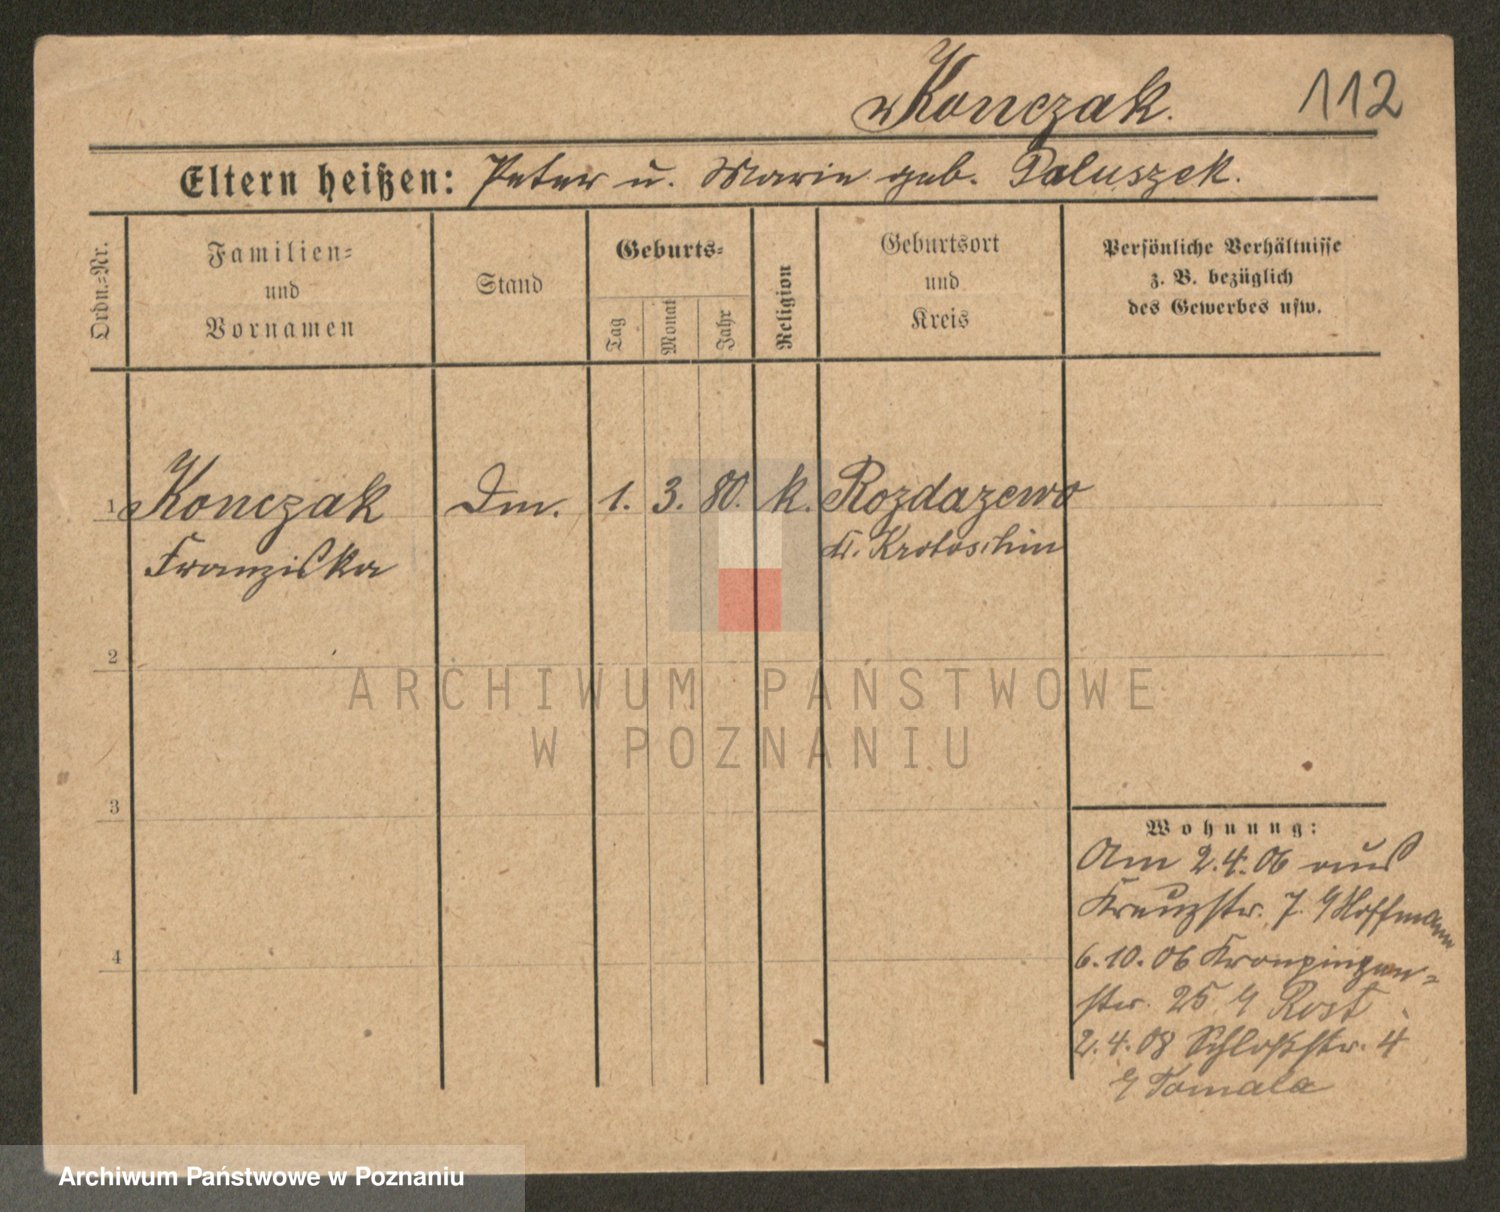 Konczak.
112
Eltern heißen: Peter u. Marie geb. Paluszek.
Ordn.-Nr.
Familien-
und
Vornamen
Stand
Geburts-
Tag
Monat
Jahr
Religion
Geburtsort
und
Kreis
Persönliche Verhältnisse
z. B. bezüglich
des Gewerbes usw.
1 Konczak Dm. 1. 3. 80. k. Rozdazewo
Franziska Kr. Krotoschin
2
3
4
Wohnung:
Am 2.4.06 aus
Kreuzstr. 7. Hoffmann
6.10.06 Kronprinzen-
str. 25 Rost
2.4.08 Schloßstr. 4
Tomala
ARCHIWUM PAŃSTWOWE
W POZNANIU
Archiwum Państwowe w Poznaniu